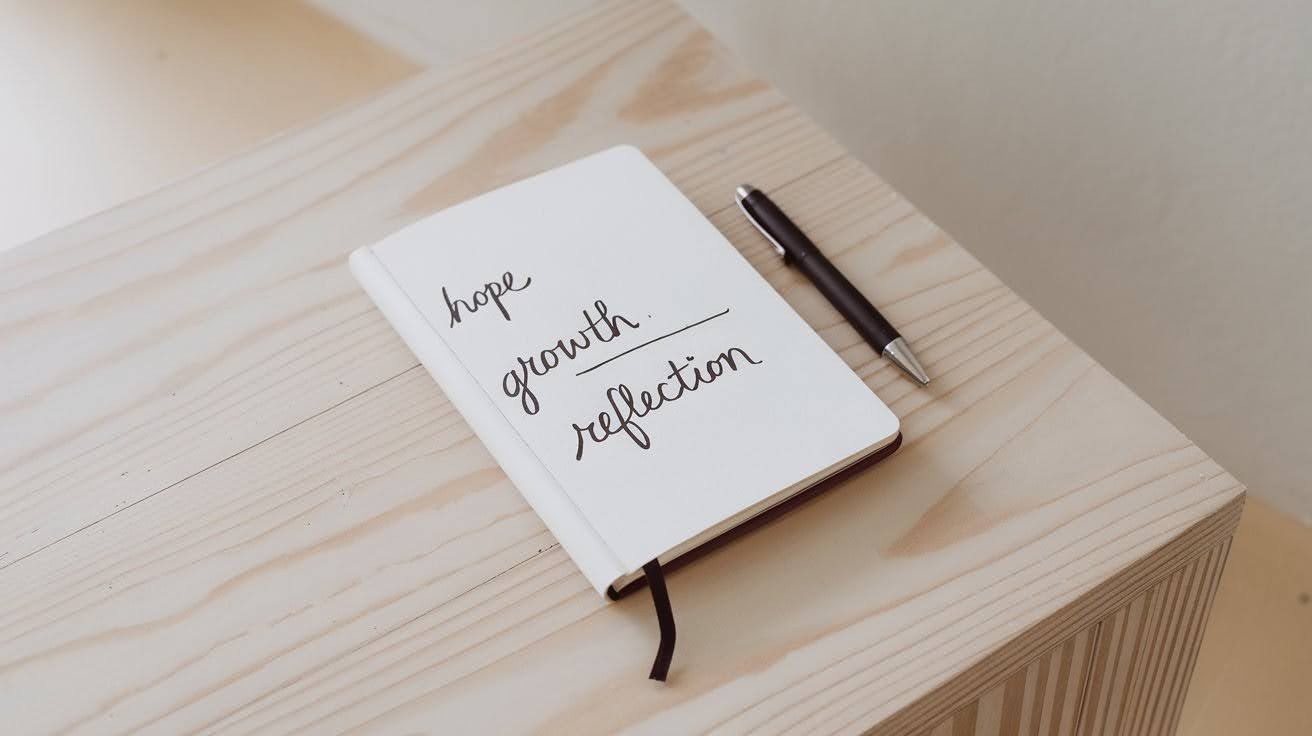 hope
growth.
reflection